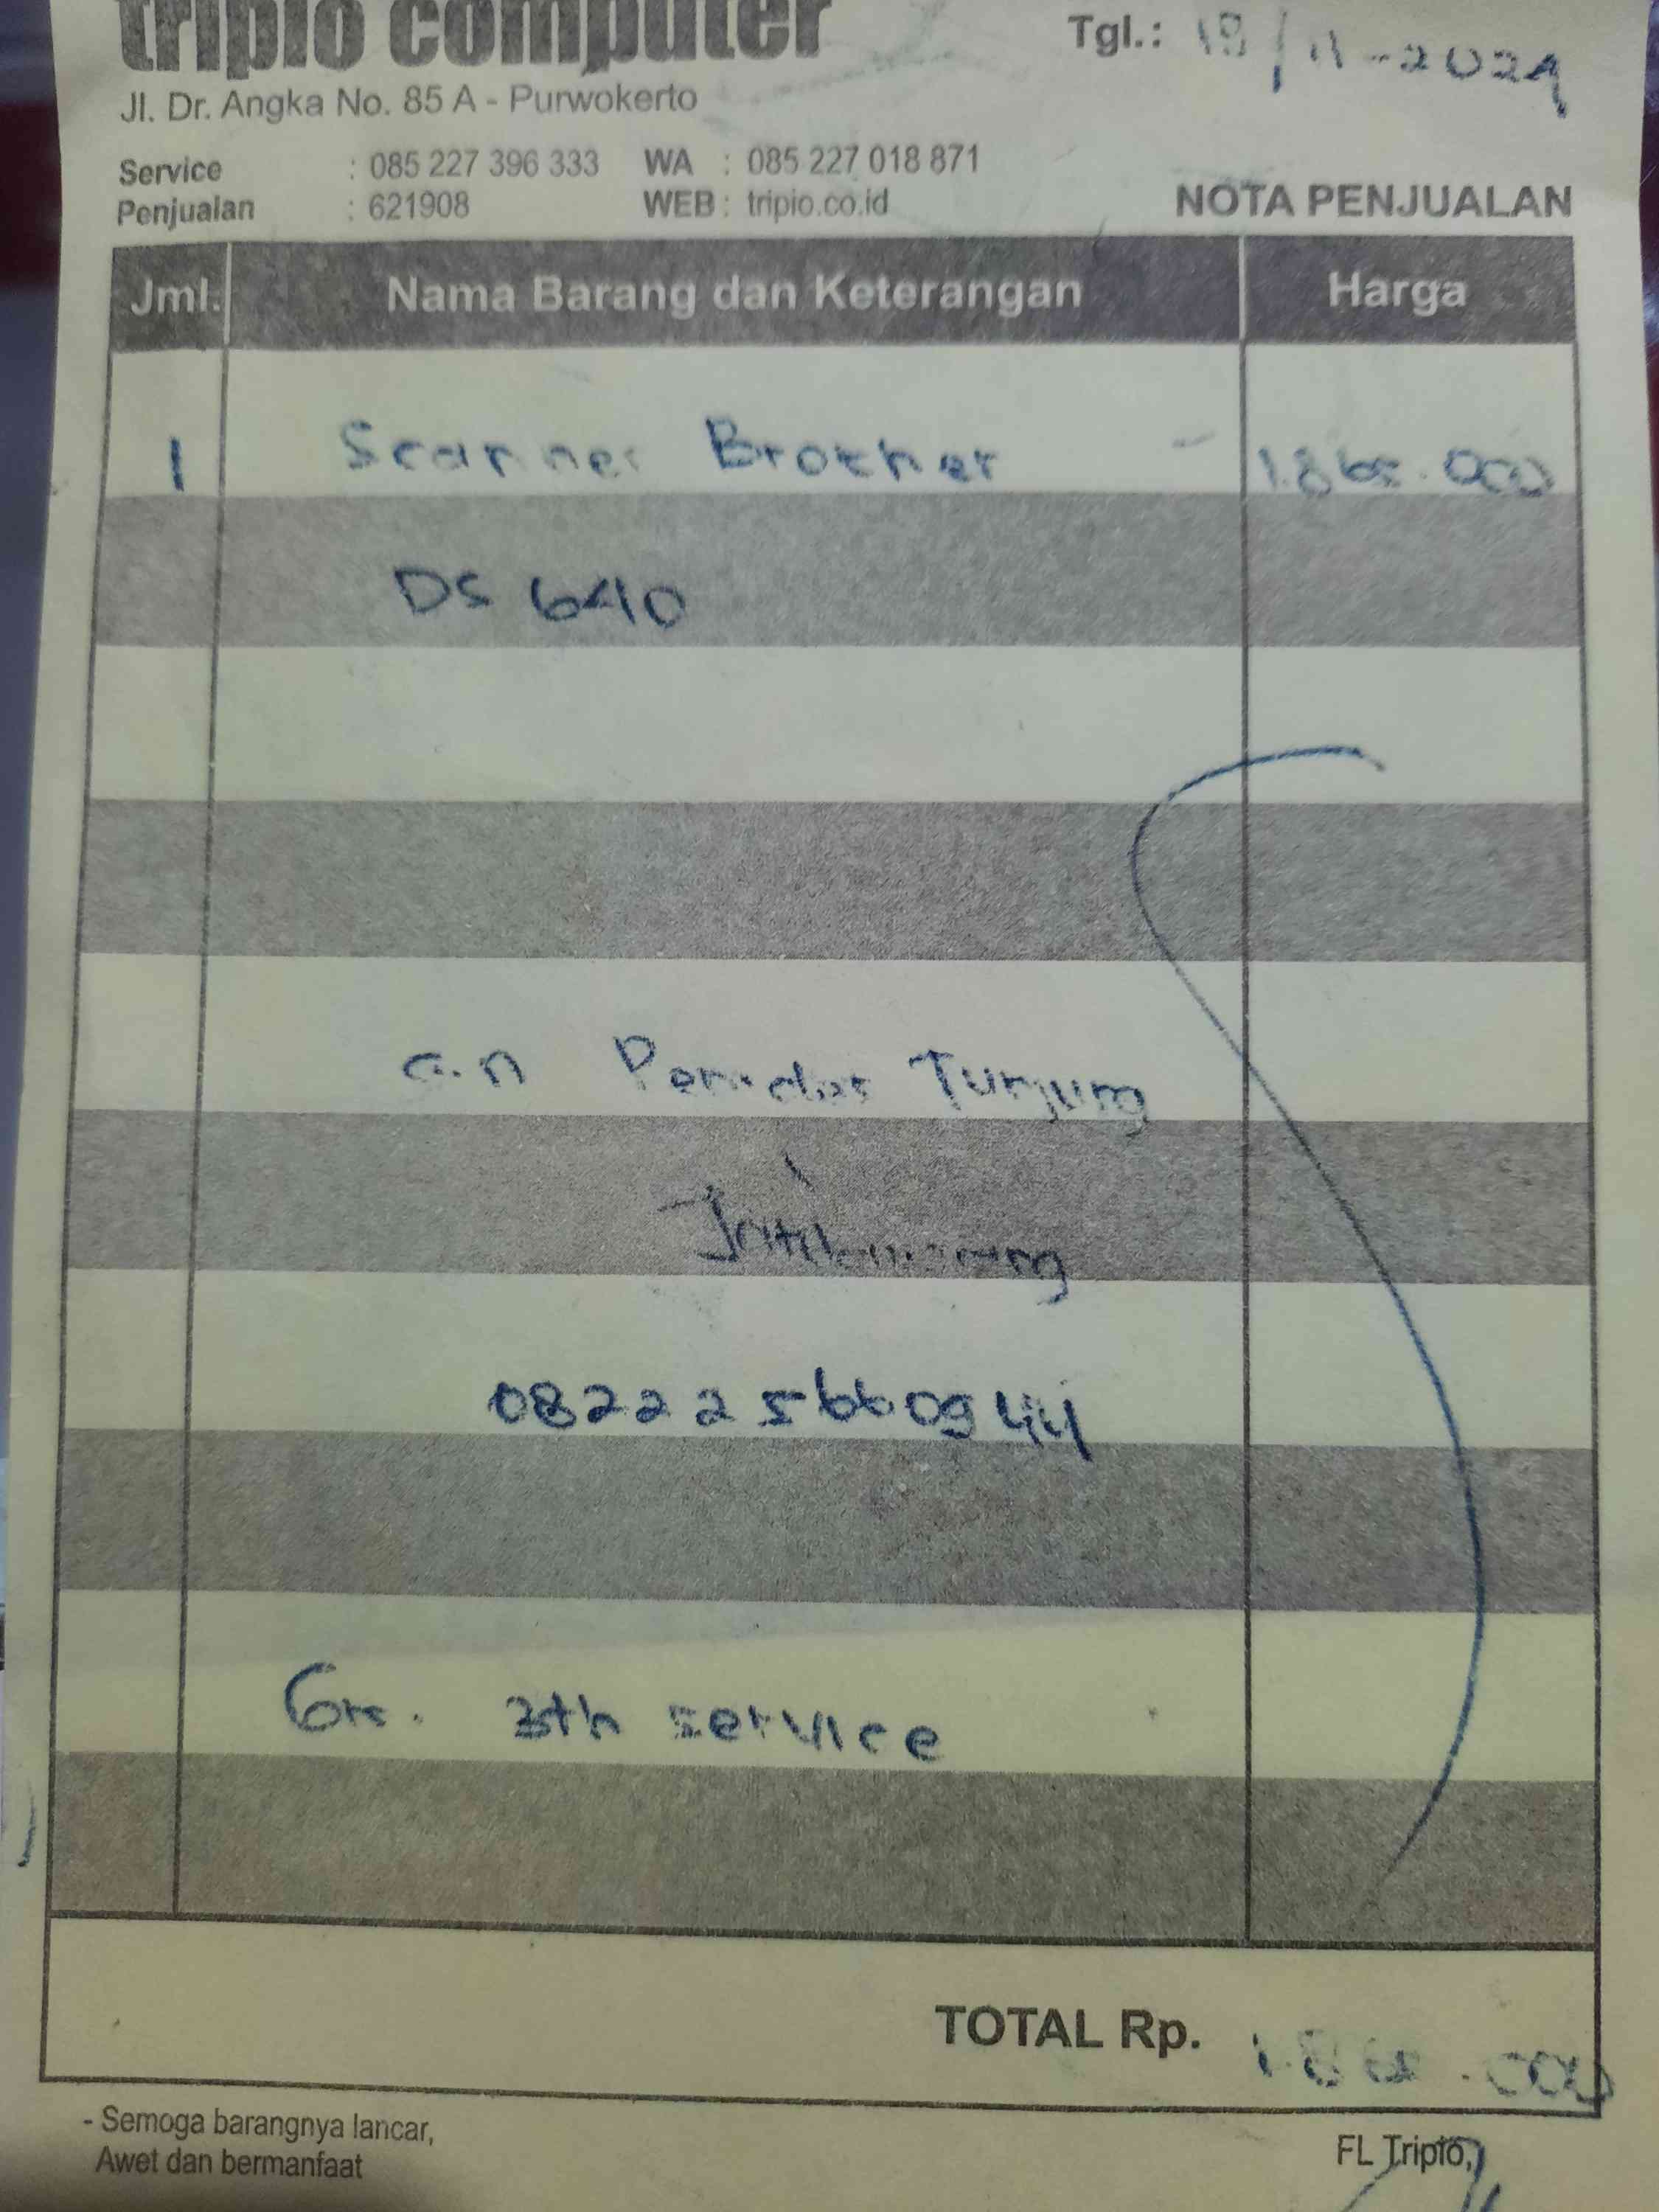 tripio computer
Tgl.: 18/11-2024
Jl. Dr. Angka No. 85 A - Purwokerto
Service : 085 227 396 333 WA : 085 227 018 871
Penjualan : 621908 WEB : tripio.co.id
NOTA PENJUALAN
Jml. Nama Barang dan Keterangan Harga
1 Scanner Brother - 1.865.000
DS 640
a.n Tunjung
082225660944
Gr. 3th service
TOTAL Rp. 1.865.000
- Semoga barangnya lancar,
Awet dan bermanfaat
FL Tripio,